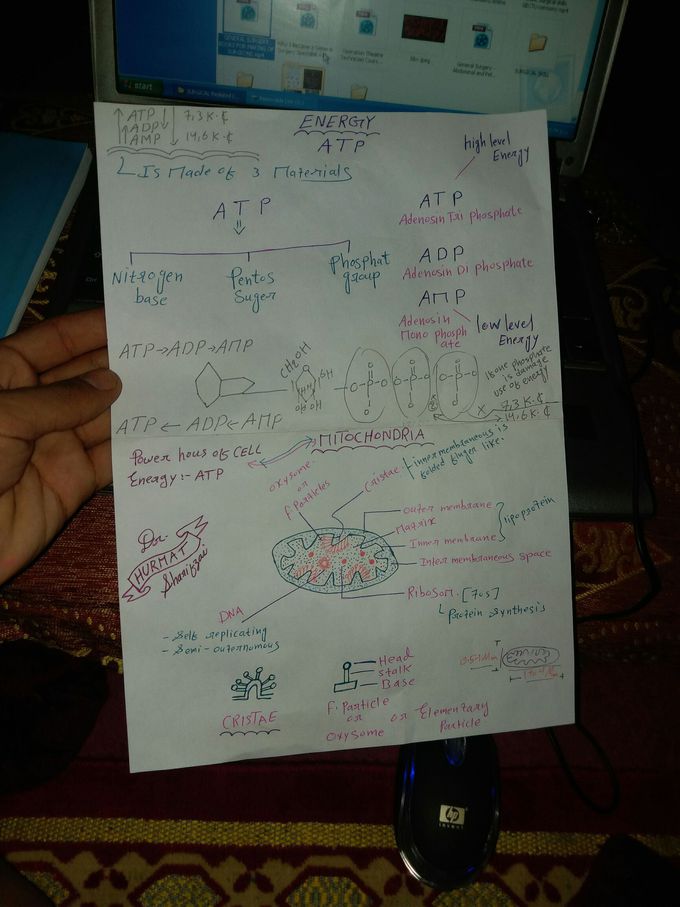 GENERAL SURGERY
start
SURGICAL SKILL
ENERGY
ATP
↑ ATP ↓ 7,3 K.¢
↑ ADP ↓
AMP ↓ 14,6 K.¢
Is Made of 3 Materials
high level
Energy
ATP
⇓
Nitrogen
base
Pentos
Suger
Phosphat
group
ATP
Adenosin Tri phosphate
ADP
Adenosin Di phosphate
AMP
Adenosin
Mono phosph
ate
low level
Energy
ATP→ADP→AMP
ATP ← ADP ← AMP
CH2OH
OH
OH OH
O
O-P-O
O
O
O-P-O
O
O
O-P-O
O
If one phosphate
is damage
use of energy
X 7,3 K.¢
14,6 K.¢
MITOCHONDRIA
Power hous of CELL
Energy:- ATP
Oxysome
or
F. Particles
Cristae.
inner membraneous is
folded finger like.
Outer membrane
Matrix
Inner membrane
lipoprotein
Inter membraneous space
Ribosom. [70s]
Protein synthesis
Dr.
HURMAT
Sharifzai
DNA
- Self replicating
- Semi-outernumous
CRISTAE
Head
Stalk
Base
F. Particle
or
Oxysome
or Elementary
Particle
hp